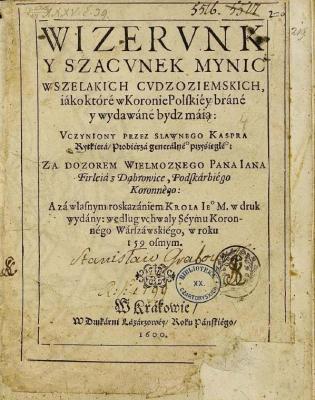 5516. 5517
WIZERVNK
Y SZACVNEK MYNIC
WSZELAKICH CVDZOZIEMSKICH,
iáko które w Koronie Polſkiéy bráné
y wydawáné bydz máią:
VCZYNIONY PRZEZ SLAWNEGO KASPRA
Rytkierá/ Probiérzá generálné° przyśięgłé°:
ZA DOZOREM WIELMOZNEGO PANA IANA
Firleiá z Dąbrowice, Podſkárbiégo
Koronnégo:
A zá właſnym roskazániem KROLA Ie° M. w druk
wydány: według vchwały Séymu Koron-
négo Wárſzáwſkiégo, w roku
159 oſmym.
Stanisław
BIBLIOTEKA
XX.
CZARTORYSKICH
W Krákowie/
W Drukárni Lázárzowéy/ Roku Páńſkiégo/
1600.